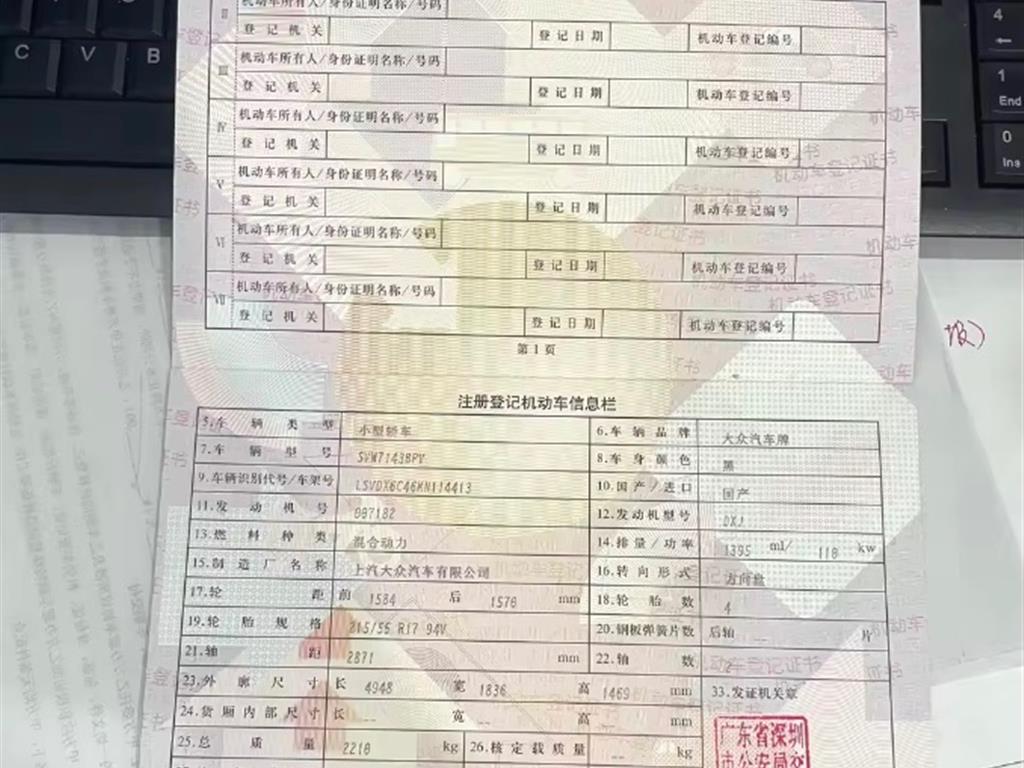 Ⅱ 机动车所有人/身份证明名称/号码
登记机关 登记日期 机动车登记编号
Ⅲ 机动车所有人/身份证明名称/号码
登记机关 登记日期 机动车登记编号
Ⅳ 机动车所有人/身份证明名称/号码
登记机关 登记日期 机动车登记编号
Ⅴ 机动车所有人/身份证明名称/号码
登记机关 登记日期 机动车登记编号
Ⅵ 机动车所有人/身份证明名称/号码
登记机关 登记日期 机动车登记编号
Ⅶ 机动车所有人/身份证明名称/号码
登记机关 登记日期 机动车登记编号
第1页
注册登记机动车信息栏
5.车辆类型 小型轿车 6.车辆品牌 大众汽车牌
7.车辆型号 SVW7143BPV 8.车身颜色 黑
9.车辆识别代号/车架号 LSVDX6C46KN114413 10.国产/进口 国产
11.发动机号 097182 12.发动机型号 DXJ
13.燃料种类 混合动力 14.排量/功率 1395 ml/ 110 kw
15.制造厂名称 上汽大众汽车有限公司 16.转向形式 方向盘
17.轮距 前 1584 后 1576 mm 18.轮胎数 4
19.轮胎规格 215/55 R17 94V 20.钢板弹簧片数 后轴 -- 片
21.轴距 2871 mm 22.轴数 2
23.外廓尺寸 长 4948 宽 1836 高 1469 mm 33.发证机关章
24.货厢内部尺寸 长 -- 宽 -- 高 -- mm
25.总质量 2210 kg 26.核定载质量 -- kg
广东省深圳
市公安局交
C V B
4 ←
1 End
0 Ins